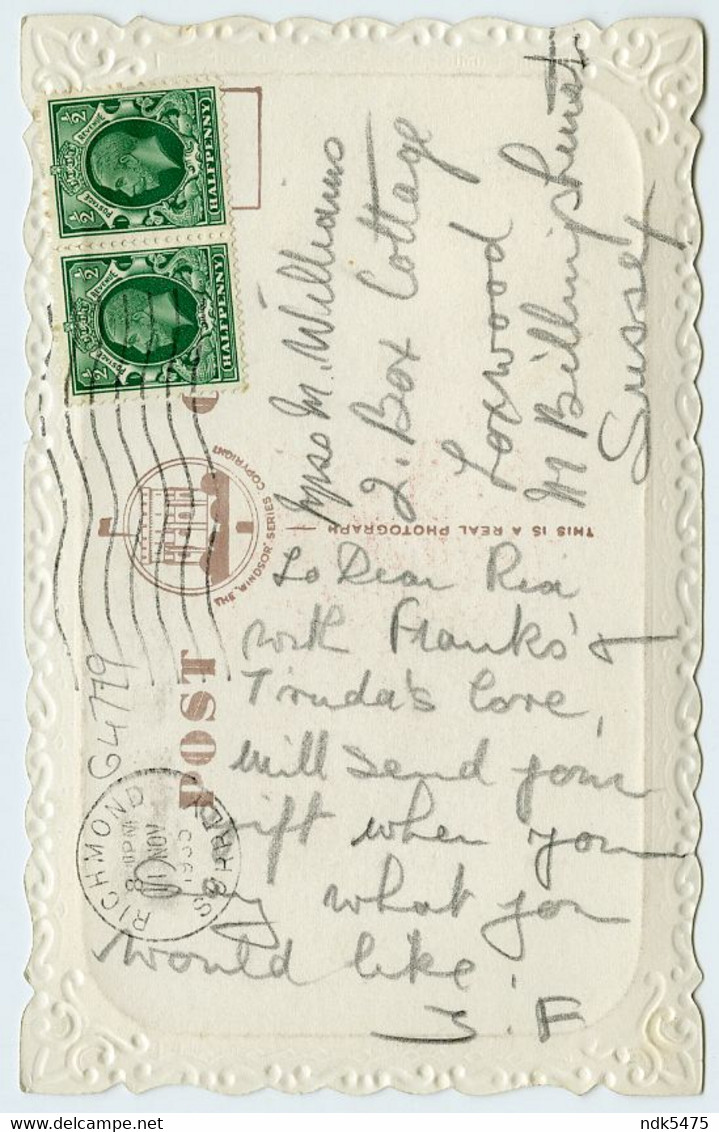 To Dear Rex
with Frank's &
Truda's love,
will send your
gift when you
say what you
would like.
J.F
Miss M. Williams
2. Box Cottage
Loxwood
Nr Billingshurst
Sussex
POST
THE WINDSOR SERIES COPYRIGHT
THIS IS A REAL PHOTOGRAPH
RICHMOND
NOV
SURREY
64779
POSTAGE REVENUE
½ ½
HALFPENNY
POSTAGE REVENUE
½ ½
HALFPENNY
ndk5475